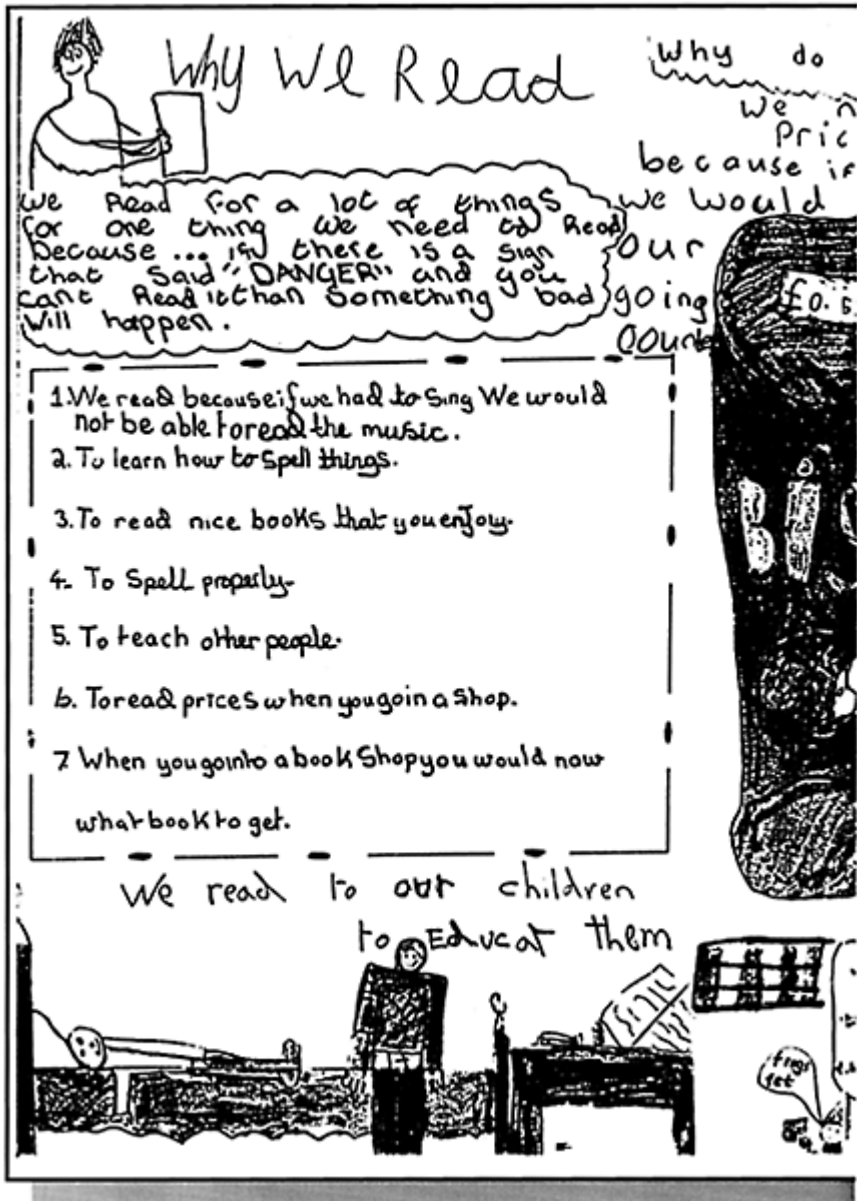 Why We Read
We Read for a lot of things
for one thing we need to Read
because ... if there is a sign
that Said "DANGER" and you
cant Read it than Something bad
will happen.
1. We read because if we had to Sing We would
not be able to read the music.
2. To learn how to Spell things.
3. To read nice books that you enjoy.
4. To Spell properly.
5. To teach other people.
6. To read prices when you go in a Shop.
7 When you go into a book Shop you would now
what book to get.
We read to our children
to Educat them
Why do
we
Pric
because if
we would
our
going
£0.6